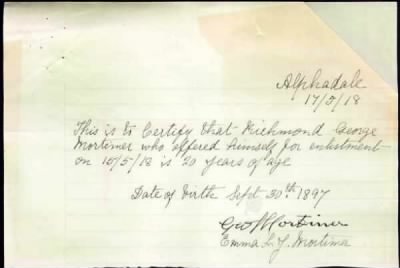 Alphadale
17/5/18
This is to Certify that Richmond George
Mortimer who offered himself for enlistment
on 10/5/18 is 20 years of age
Date of Birth Sept 30th 1897
Geo Mortimer
Emma L. J. Mortimer